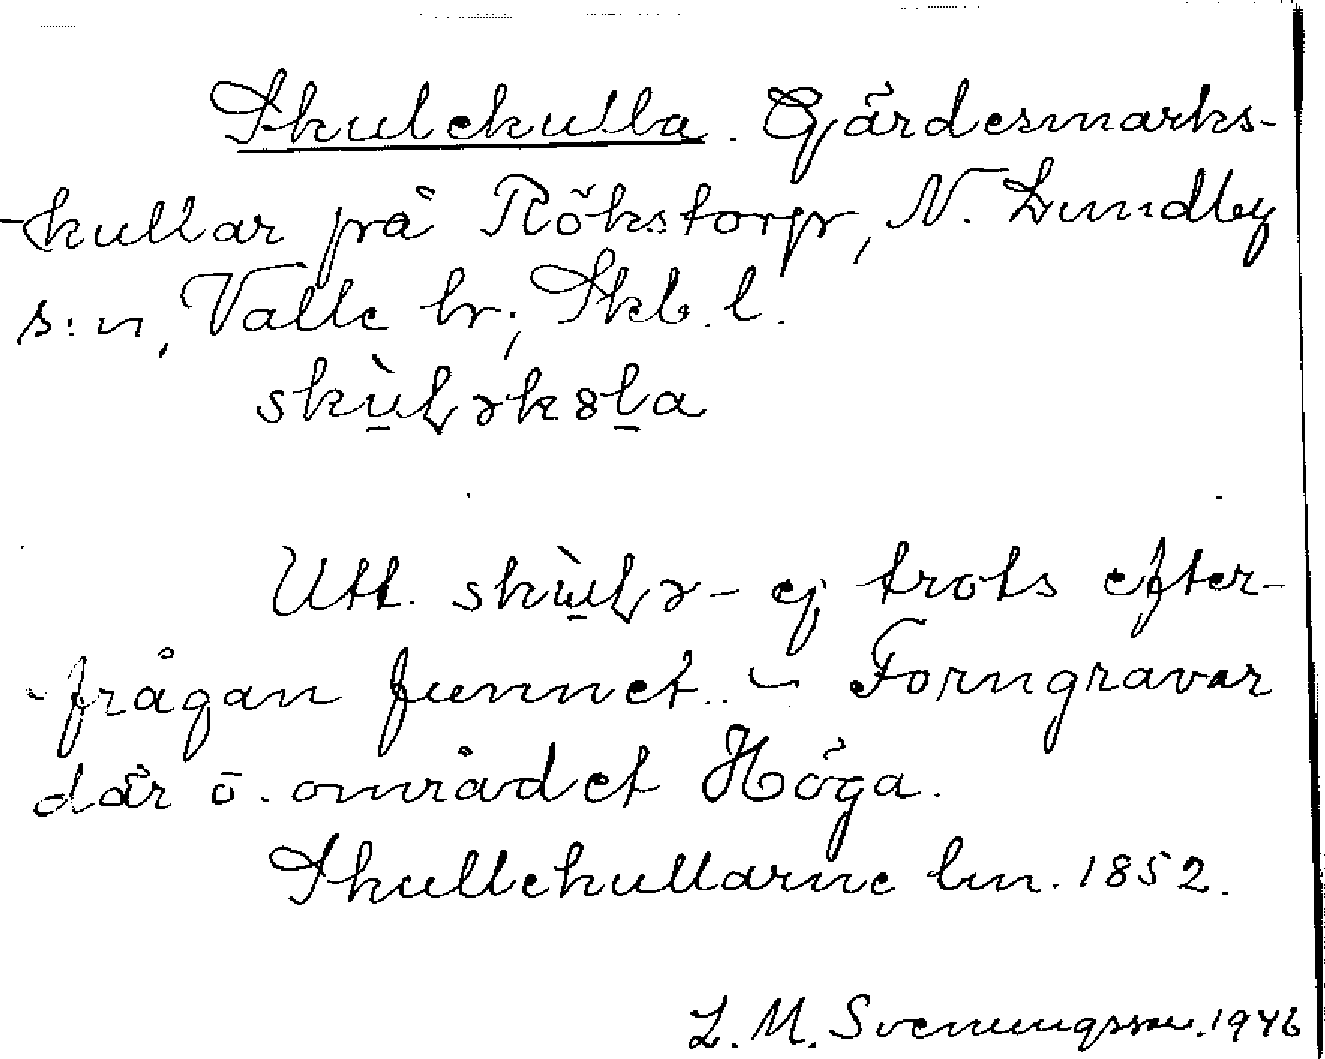 Skulekulla. Gärdesmarks-
-kullar på Rökstorp, N. Lundby
s:n, Valle hr; Skb. l.

Utt. ej trots efter-
-frågan funnet. – Forngravar
där ö. området Höga.
Skullekullarne lm. 1852.
L. M. Svenungsson. 1946